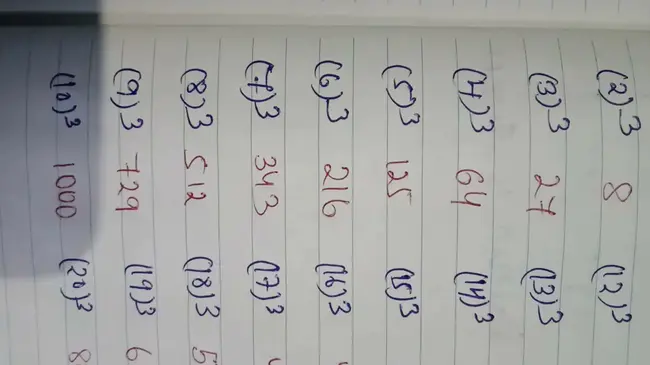 (2)³ 8 (12)³
(3)³ 27 (13)³
(4)³ 64 (14)³
(5)³ 125 (15)³
(6)³ 216 (16)³
(7)³ 343 (17)³
(8)³ 512 (18)³ 5
(9)³ 729 (19)³ 6
(10)³ 1000 (20)³ 8